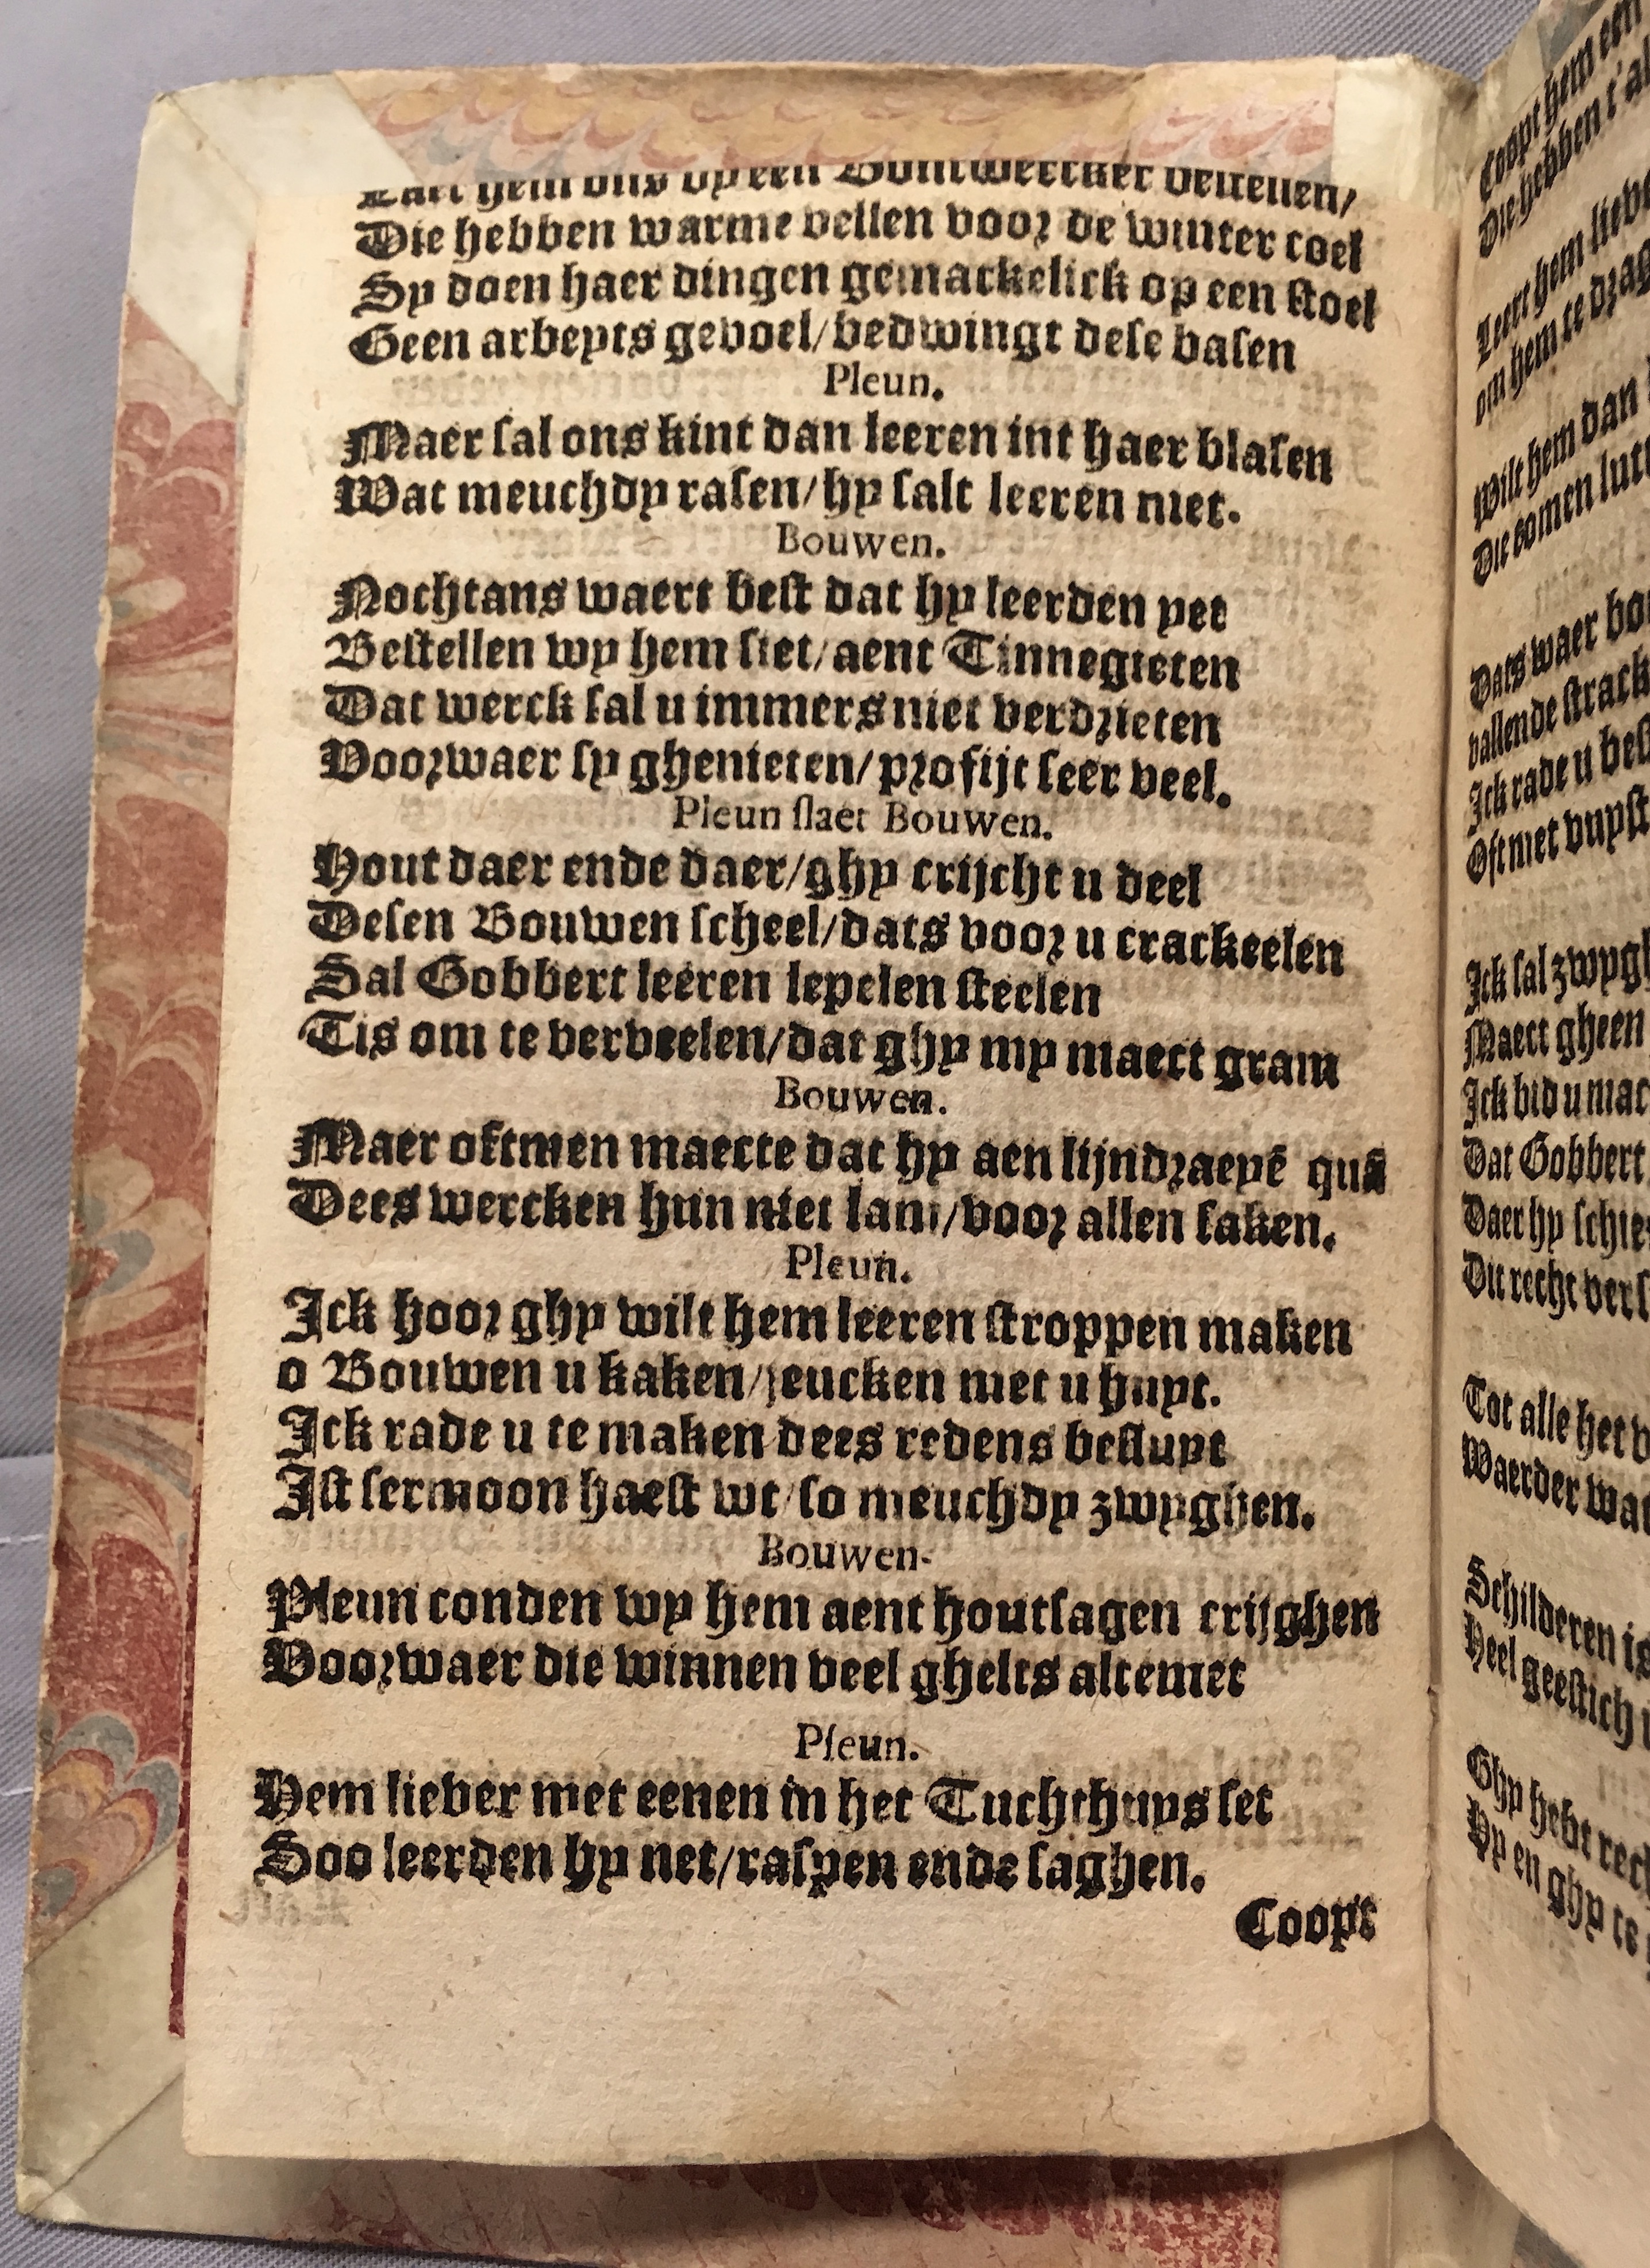 Laet hem ons op een Bontwercker bestellen/
Die hebben warme vellen voor de winter coel
Sy doen haer dingen gemackelick op een stoel
Geen arbeyts gevoel/bedwingt dese basen
Pleun.
Maer sal ons kint dan leeren int haer blasen
Wat meuchdy rasen/hy salt leeren niet.
Bouwen.
Nochtans waert best dat hy leerden yet
Bestellen wy hem siet/aent Tinnegieten
Dat werck sal u immers niet verdrieten
Voorwaer sy ghenieten/profijt seer veel.
Pleun slaet Bouwen.
Hout daer ende daer/ghy crijcht u deel
Desen Bouwen scheel/dats voor u crackeelen
Sal Gobbert leeren lepelen steelen
Tis om te verveelen/dat ghy my maect gram
Bouwen.
Maer oftmen maecte dat hy aen lijndraeyē quā
Dees wercken hun niet lam/voor allen saken.
Pleun.
Ick hoor ghy wilt hem leeren stroppen maken
o Bouwen u kaken/jeucken met u huyt.
Ick rade u te maken dees redens besluyt
Ist sermoon haest wt/so meuchdy zwyghen.
Bouwen-
Pleun conden wy hem aent houtsagen crijghen
Voorwaer die winnen veel ghelts altemet
Pleun.
Hem liever met eenen in het Tuchthuys set
Soo leerden hy net/raspen ende saghen.
Coopt
Coopt hem een
Die hebben t'al
Leert hem lieve
om hem te drag
Wilt hem dan
Die comen lutt
Dats waer bo
vallende strack
Ick rade u best
Oft met vuyst
Ick sal zwygh
Maect gheen
Ick bid u mac
Dat Gobbert
Daer hy schie
Dit recht vers
Tot alle het v
Waerder wat
Schilderen is
Heel geestich
Ghy hebt rech
Hy en ghy te